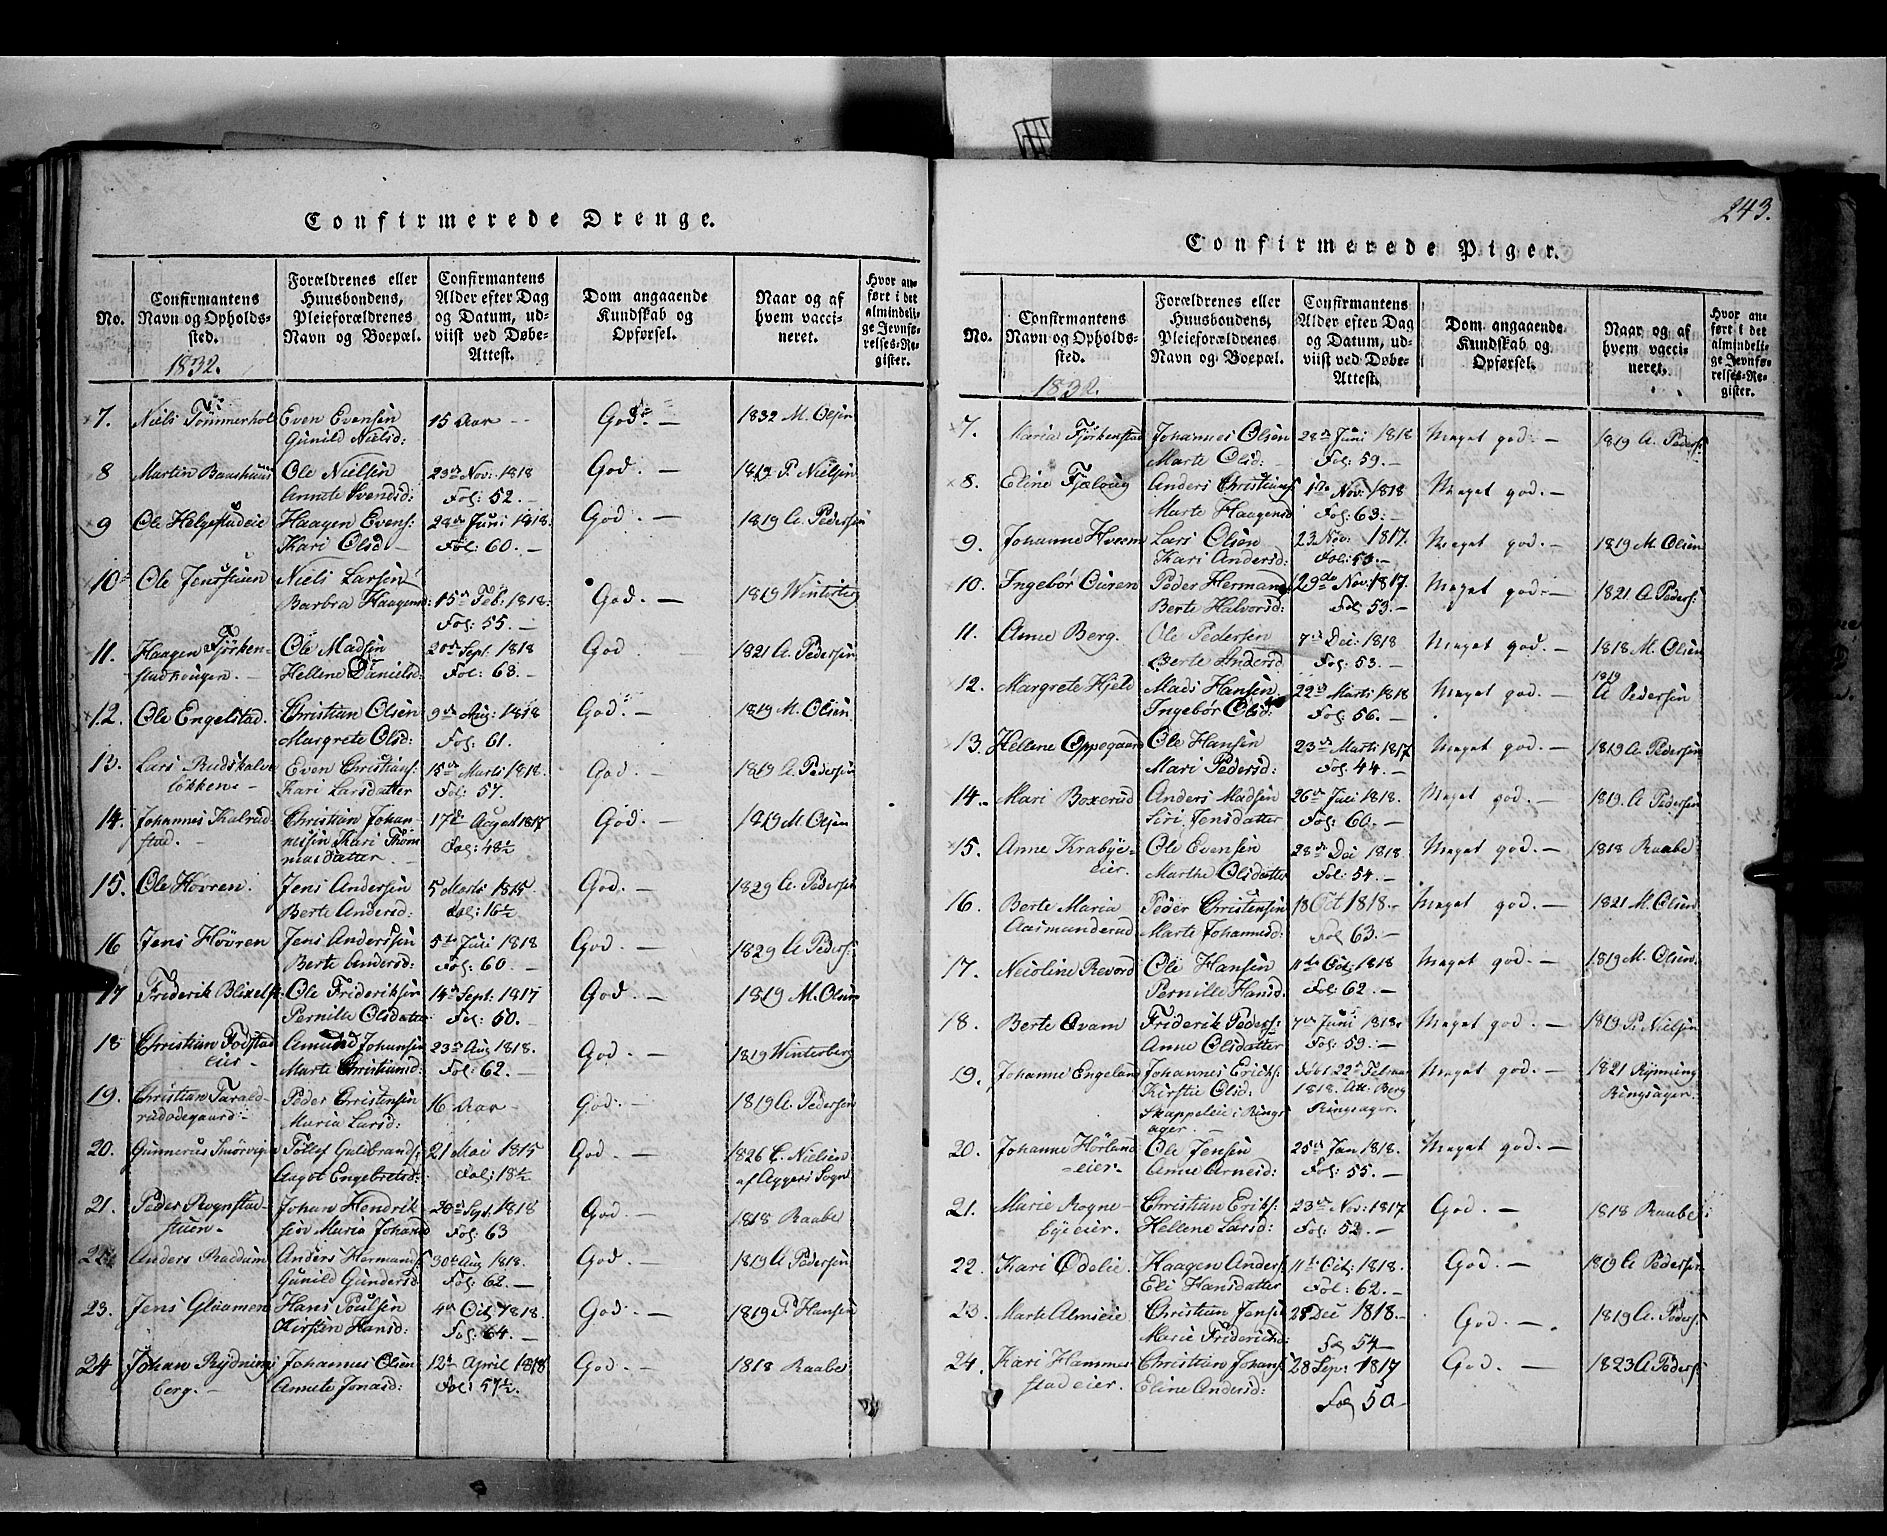 Confirmerede Drenge.
No.
Confirmantens Navn og Opholdssted.
1832.
Forældrenes eller Huusbondens, Pleieforældrenes Navn og Boepæl.
Confirmantens Alder efter Dag og Datum, udviist ved Døbe-Attest.
Dom angaaende Kundskab og Opførsel.
Naar og af hvem vaccineret.
Hvor anført i det almindelige Jevnførelses-Register.
7. Niels Tømmerhol Even Evensen 15 Aar -- God. 1832 M. Olsen
Gunild Nielsd:
8 Martin Baashuus Ole Nielsen 29de Nov: 1818 God. — 1819 P. Nielsen
Annete Svendsd: Fol: 52. —
9 Ole Helgestadeie Haagen Evens: 28de Juni 1818. God. — 1819 A. Pedersen
Kari Olsd — Fol: 60. —
10 Ole Jensstuen Niels Larsen
Barbra Haagensd: 15de Feb: 1818: God. — 1819 Winterberg
Fol: 55. —
11. Haagen Tjørken- Ole Madsen 20de Sept: 1818 God 1821 A. Pedersen
stadhougen. — Hellene Danielsd: Fol: 63. —
12. Ole Engelstad. Christian Olsen 9de Aug: 1818 God. — 1819 M. Olsen
Margrete Olsd: Fol: 61.
13. Lars Rudskalve Even Christians: 15de Marts 1818. God — 1819 A. Pedersen
løkken — Kari Larsdatter Fol: 57.
14. Johannes Kalrud- Christian Johan- 17de August 1817 God. — 1819 M. Olsen
stad. — nesen Kari Thom- Fol: 48½
masdatter. —
15. Ole Hovren. Jens Andersen 5 Marts 1815. God. — 1829 A. Pedersen
Berte Andersd: Fol: 16½
16 Jens Hovren Jens Anderssen 5te Juli 1818 God — 1829 A. Peders:
Berte Andersd: Fol: 60. —
17 Friderik Blixelst: Ole Frideriksen 14de Sept: 1817 God — 1819 M. Olsen
Pernille Olsdatter Fol: 50. —
18 Christian Fodstad Amund Johansen 23de Aug 1818. God. — 1819 Winterberg
eier — Marte Christiansd: Fol: 62. —
19. Christian Tarald- Peder Christensen 16 Aar — God. — 1819 A. Pedersen
rudødegaard — Maria Larsd:
20. Gunnerus Smørvigen Tollef Gulbrands: 21 Mai 1815 God. — 1826 C. Nielsen
Aagot Engebretsd: Fol: 18½ af Aggers Sogn
21. Peder Rognstad- Johan Hendrik- 20de Sept. 1818 God. — 1818 Raabe
stuen. — sen Maria Johansd Fol: 63
22. Anders Raddum Anders Hermans 30te Aug 1818. God. — 1819 A. Pedersen
Gunild Gundersd Fol: 62. —
23. Jens Glaamen Hans Poulsen 4de Oct: 1818. God. — 1819 P. Hansen
Kirsten Hansd: Fol: 64. —
24 Johan Rydnings Johannes Olsen 12te April 1818 God. — 1818 Raabe
berg. — Annete Jonasd: Fol: 57½.
243.
Confirmerede Piger.
No.
Confirmantens Navn og Opholdssted.
1832.
Forældrenes eller Huusbondens, Pleieforældrenes Navn og Boepæl.
Confirmantens Alder efter Dag og Datum, udviist ved Døbe-Attest.
Dom angaaende Kundskab og Opførsel.
Naar og af hvem vaccineret.
Hvor anført i det almindelige Jevnførelses-Register.
7. Karia Tjørkenstad Johannes Olsen 28de Juni 1818 Meget god. — 1819 A. Peders:
Marte Olsd: Fol: 59. —
8. Eline Fjeloug Anders Christians 1ste Nov: 1818 Meget god. —
Marte Haagensd Fol: 63. —
9. Johanne Hveem Lars Olsen 23 Nov: 1817. Meget god. — 1819 M. Olsen
Kari Andersd: Fol: 53. —
10. Ingebør Ouren Peder Hermans 29de Nov: 1817. Meget god. — 1821 A. Peders:
Berte Halvorsd: Fol: 53. —
11. Anne Berg. Ole Pedersen 7de Dec 1818 Meget god. — 1818 M. Olsen
Berte Andersd Fol: 53. —
12. Margrete Hjeld Mads Hansen 22de Marts 1818 Meget god. — 1819 A Pedersen
Ingebør Olsd: Fol: 56. —
13. Hellene Oppegaard Ole Hansen 23de Marts 1817 Meget god. — 1819 A. Pedersen
Mari Pedersd: Fol: 44. —
14. Mari Boxerud Anders Madsen 26de Juli 1818. Meget god. — 1819. A Pedersen
Siri Jensdatter Fol: 60. —
15. Anne Krabye- Ole Evensen 28de Dec 1818. Meget god. — 1818 Raabe
eier. Marthe Olsdatter Fol: 54. —
16. Berte Maria Peder Christensen 18 Oct 1818. — Meget god. — 1821 M. Olsen
Aasmunderud Marte Johannesd: Fol 63. —
17. Nicoline Revord Ole Hansen 11te Oct: 1818 Meget god. — 1819 M. Olsen.
Pernille Hansd: Fol: 62. —
18. Berte Qvam Friderik Peders: 7de Juni 1818. Meget god. — 1819 P. Nielsen
Anne Olsdatter Fol: 59. —
19. Johanne Engeland Johannes Ericks: født 22de Februar Meget god. — 1821 Rynning
Kirstie Olsd: 1818. Att: Berg Ringsager.
Skappeleie i Rings Ringsager.
ager. —
20. Johanne Hørland Ole Jensen 25de Jan 1818. Meget god. —
eier. Anne Arnesd: Fol: 55. —
21. Marie Rogne- Christian Eriks: 23de Nov: 1817 God. — 1818 Raabe.
byeeier. Hellene Larsd: Fol: 52. —
22. Kari Ødelie. Haagen Anders 11te Oct: 1818. God. — 1819 A Pedersen
Eli Hansdatter Fol: 62. —
23. Marte Almseie Christian Jensen 28 Dec 1818. — God. —. 1819 A. Peders:
Marie Frideriksd: Fol 54 —
24. Kari Hammer Christian Johans 28 Sep: 1817 God. — 1823 A Peders:
stadeier. Eline Andersd: Fol 50 —